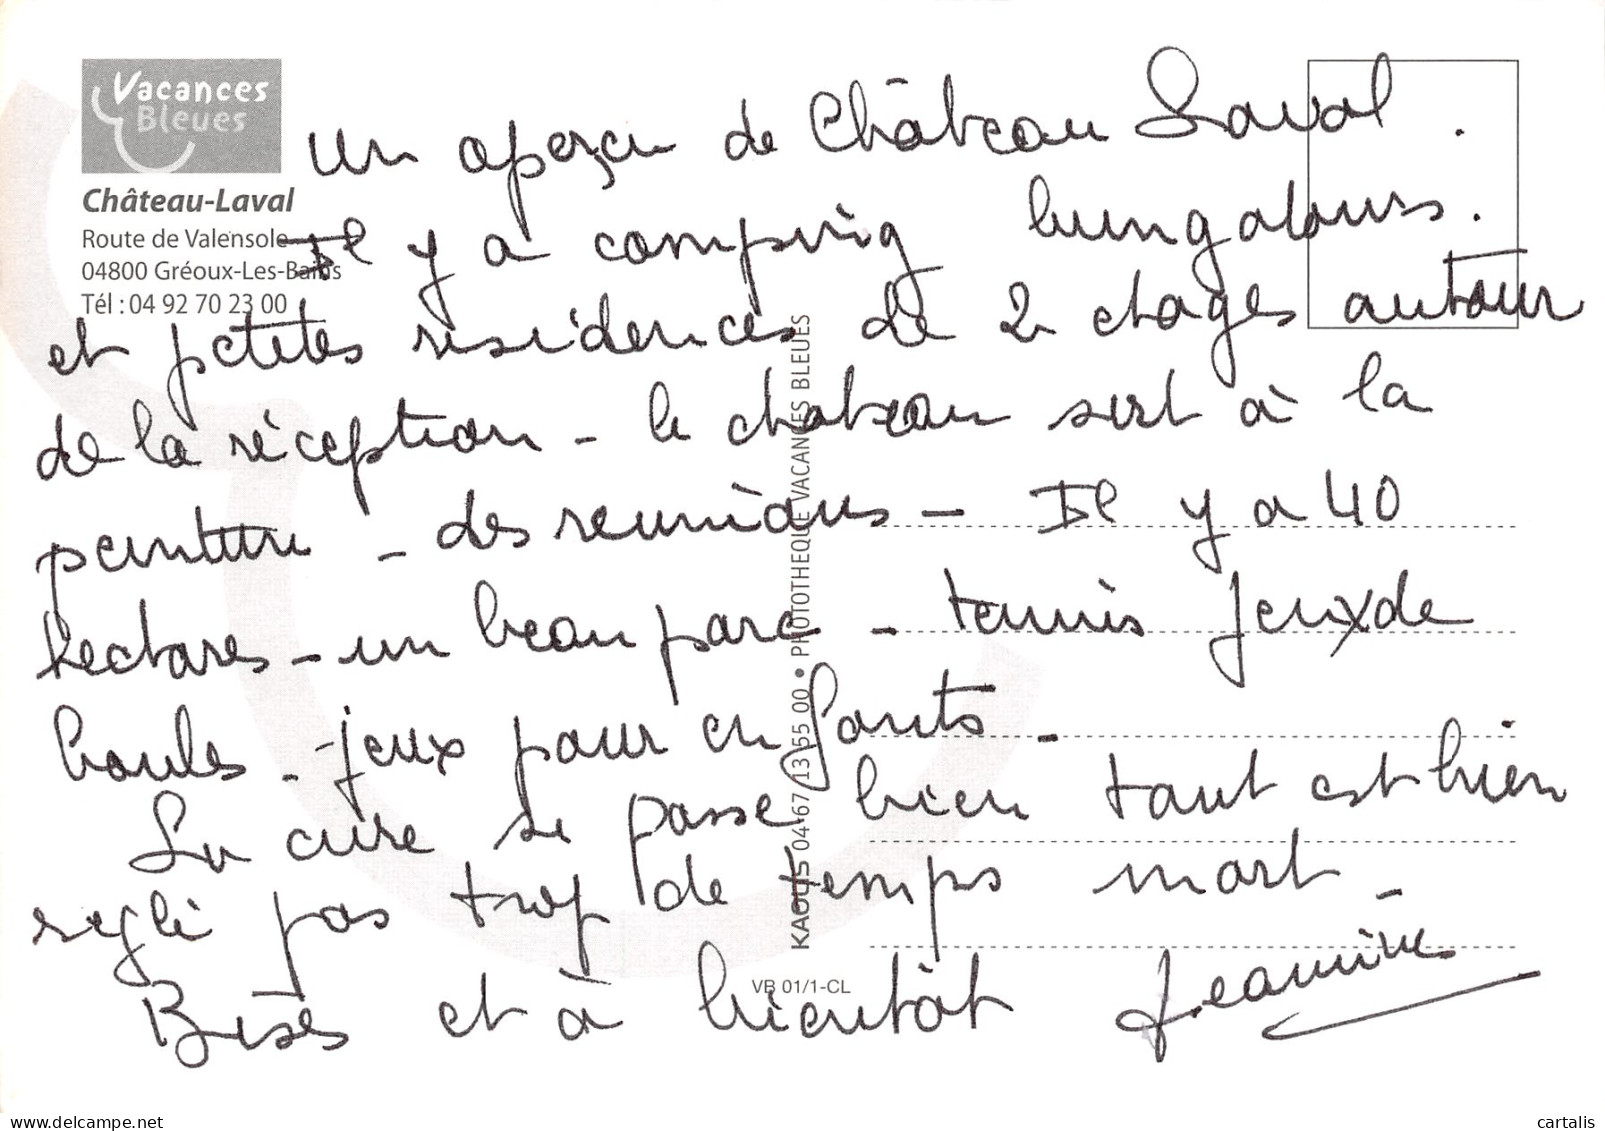 Vacances
Bleues
Château-Laval
Route de Valensole
04800 Gréoux-Les-Bains
Tél : 04 92 70 23 00
un aperçu de Château Laval.
Il y a camping bungalows.
et petites résidences de 2 étages autour
de la réception - le chateau sert à la
peinture - des reunions - Il y a 40
hectares - un beau parc - tennis jeux de
boules - jeux pour enfants -
La cure se passe bien tout est bien
reglé pas trop de temps mort -
Bises et à bientôt Jeannine
KAOUS 04 67 13 55 00 • PHOTOTHEQUE VACANCES BLEUES
VB 01/1-CL
cartalis